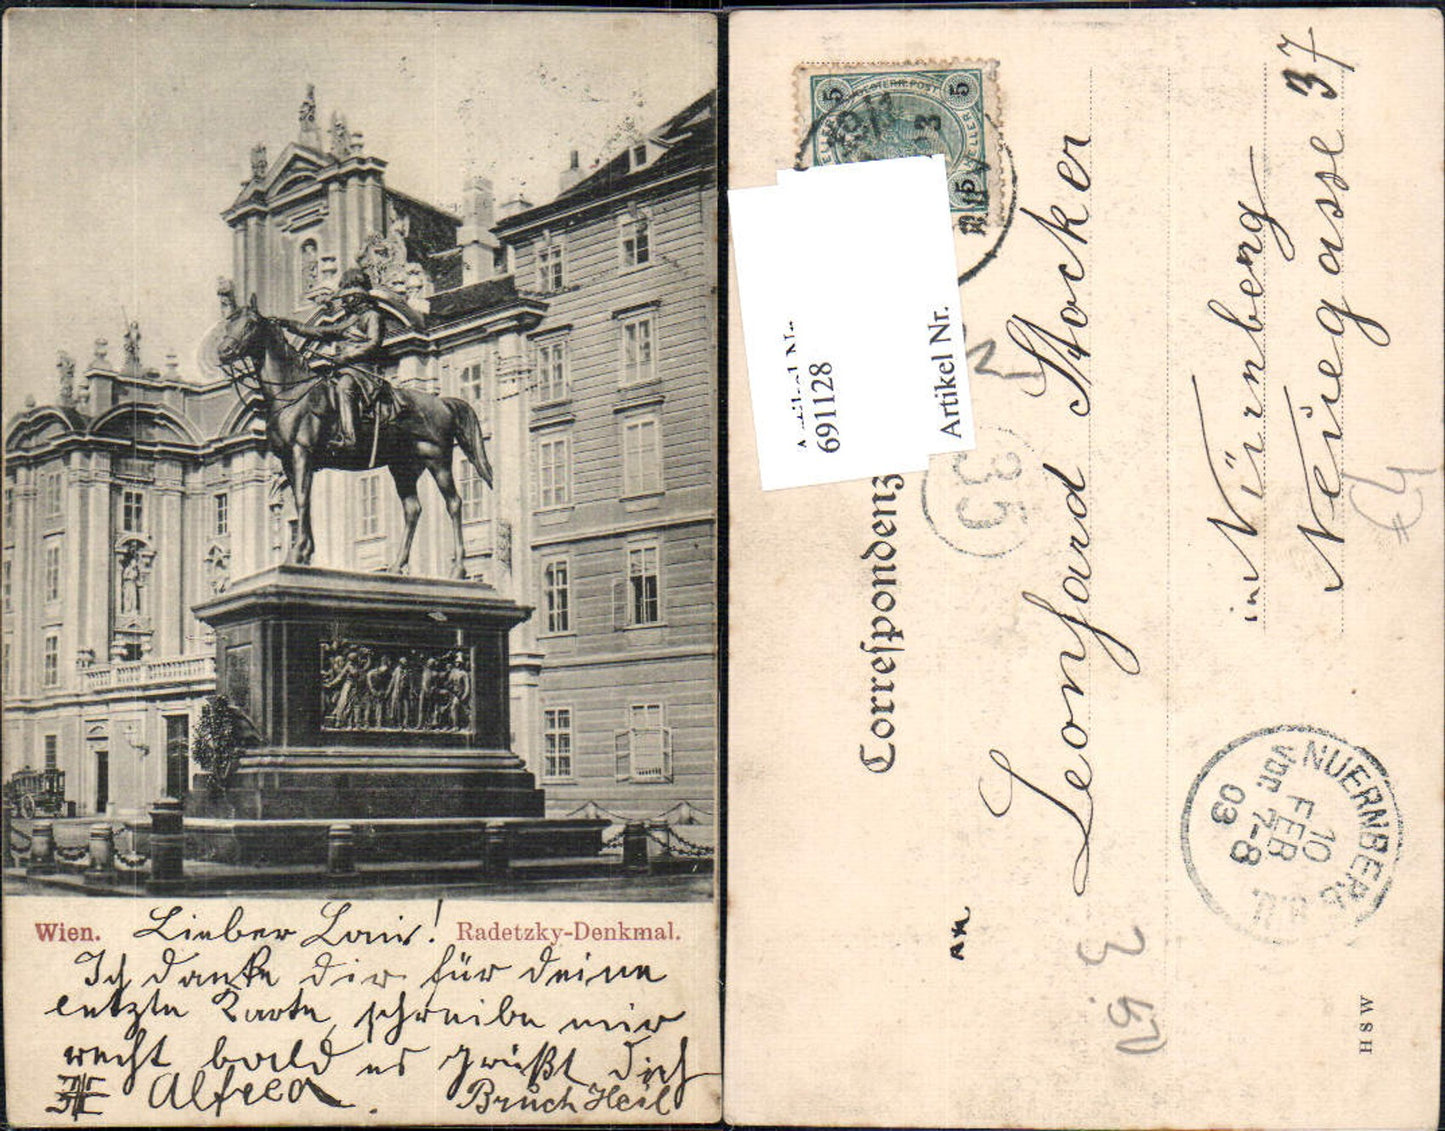 Wien. Lieber Louis! Radetzky-Denkmal.
Ich danke dir für deine
letzte Karte, schreibe mir
recht bald es grüßt dich
Alfred. Bruch Heil
5 5
5
691128
Artikel Nr.
Correspondenz
35
An
Leonhard Stocker
in Nürnberg
Neuegasse 37
NUERNBERG
10
FEB
Vor. 7-8
03
HSW